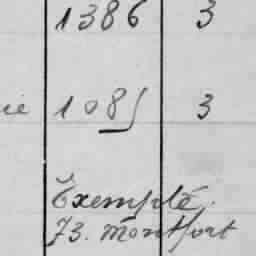 1386 3
ie 1085 3
Exempté.
73. Montfort